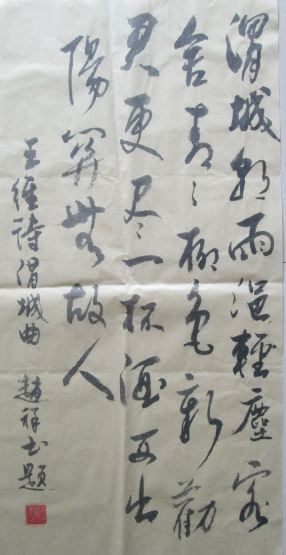 渭城朝雨浥輕塵客
舍青々柳色新勸
君更尽一杯酒西出
陽関無故人
王維詩渭城曲 趙祥书題